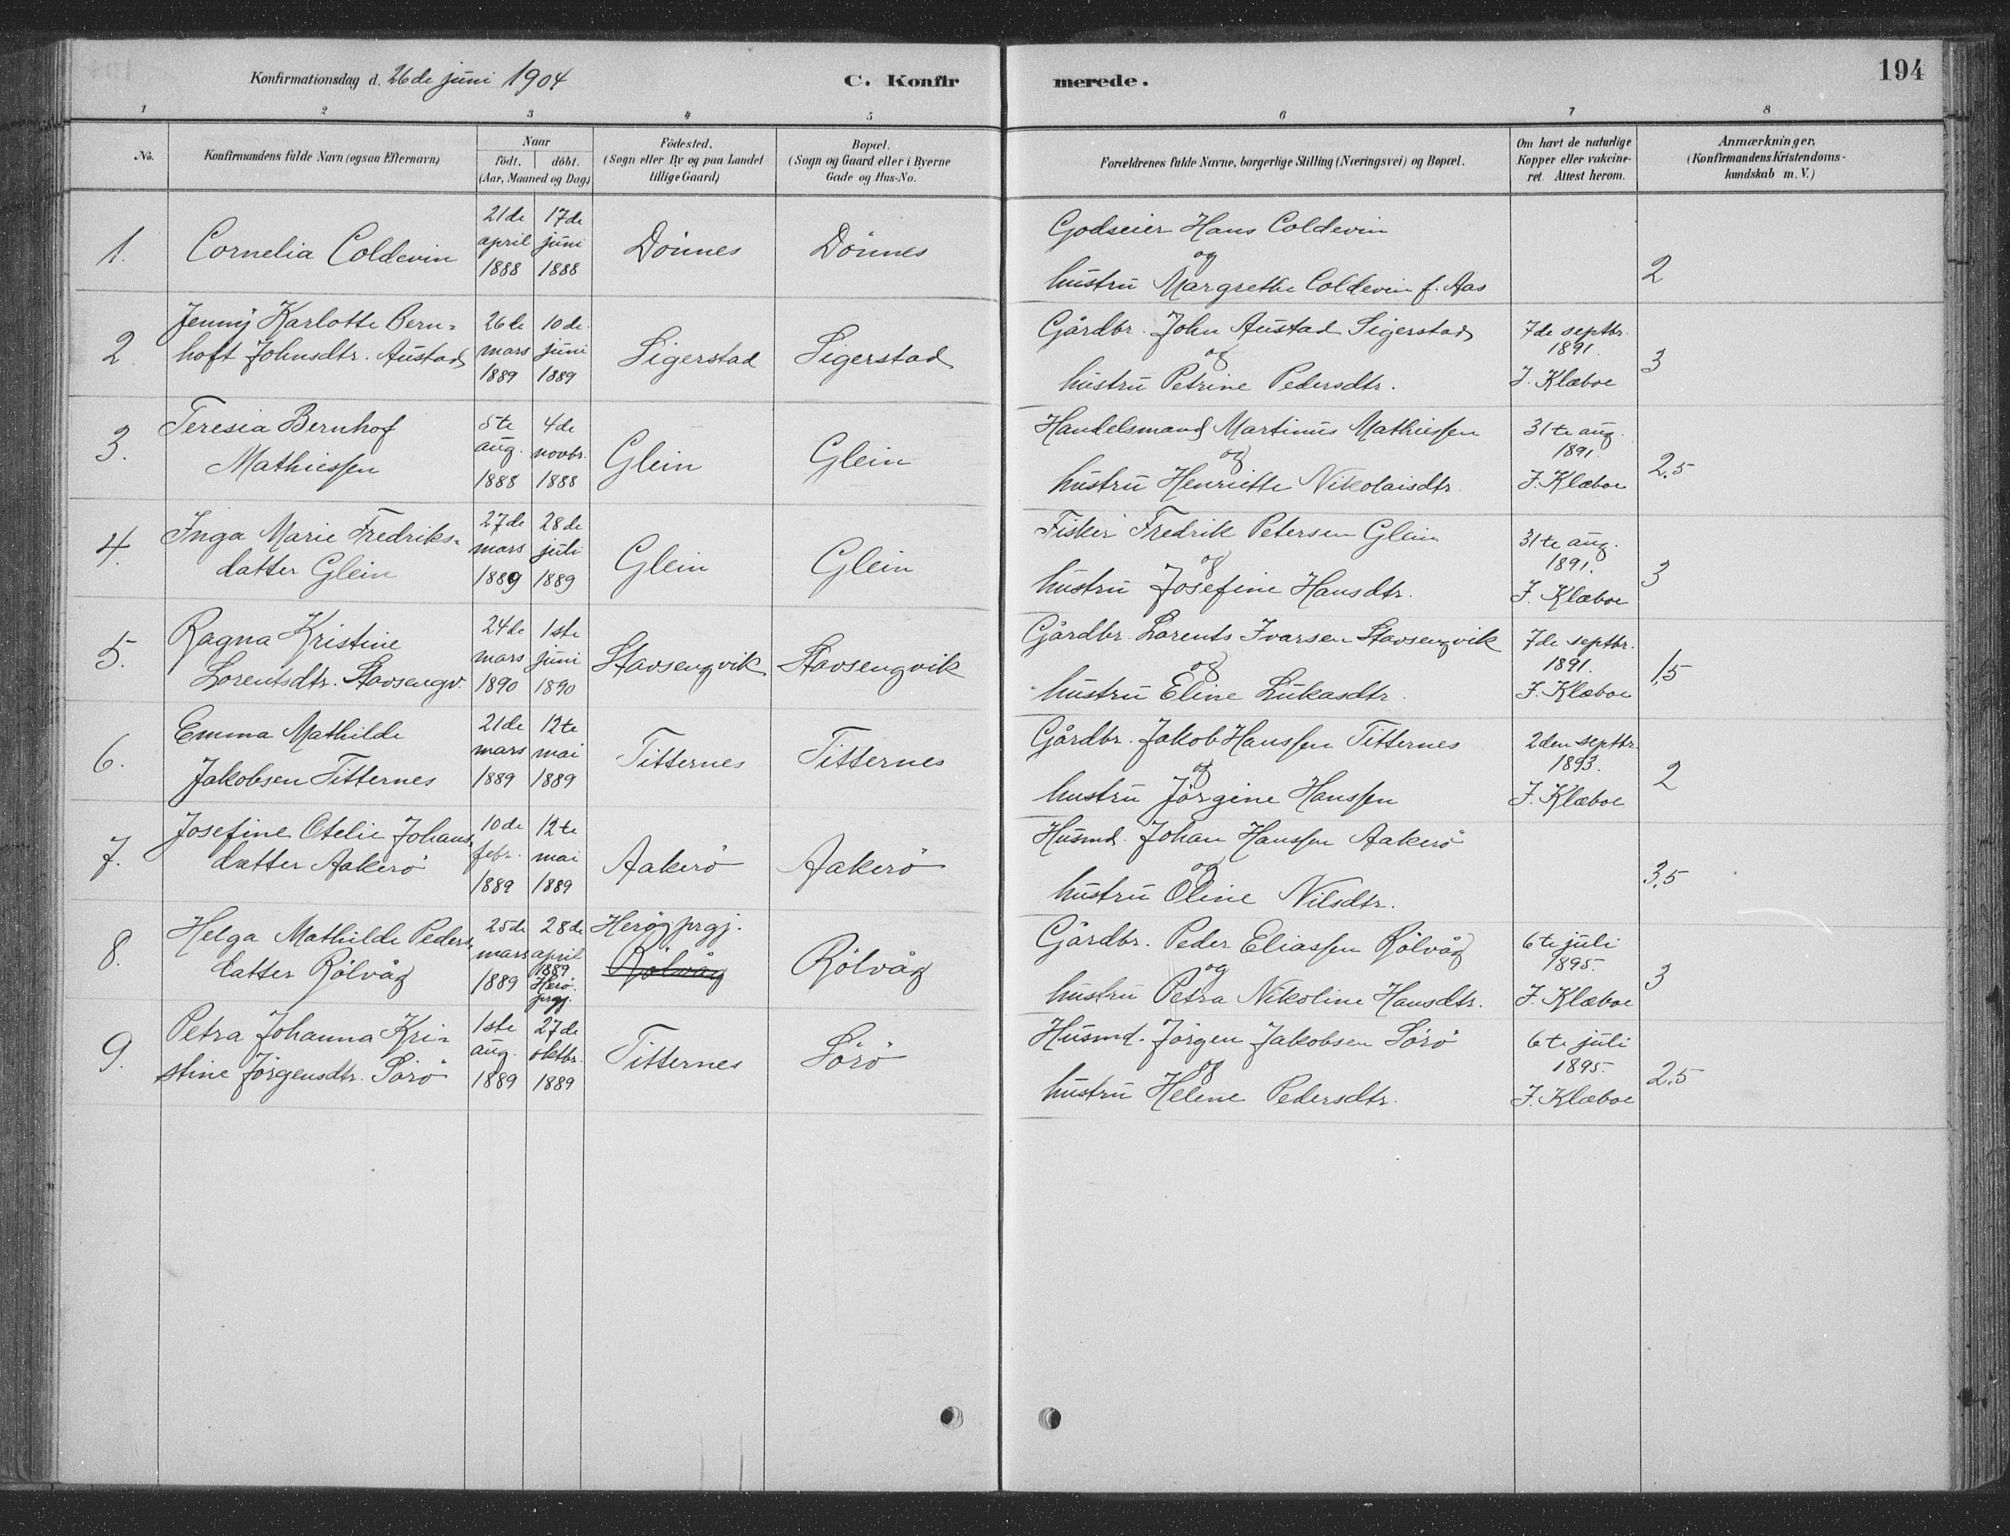 Konfirmationsdag d. 26de juni 1904
C. Konfir
merede.
194
1 2 3 4 5 6 7 8
No.
Konfirmandens fulde Navn (ogsaa Efternavn)
Naar
födt. döbt.
(Aar, Maaned og Dag.)
Födested.
(Sogn eller By og paa Landet
tillige Gaard)
Bopæl.
(Sogn og Gaard eller i Byerne
Gade og Hus-No.
Forældrenes fulde Navne, borgerlige Stilling (Næringsvei) og Bopæl.
Om havt de naturlige
Kopper eller vakcine-
ret. Attest herom.
Anmærkninger.
(Konfirmandens Kristendoms-
kundskab m. V.)
1.
Cornelia Coldevin
21de
april
1888
17de
juni
1888
Dönnes
Dönnes
Godseier Hans Coldevin
og
hustru Margrethe Coldevin f. Aas
2
2.
Jenny Karlotte Bern-
hoft Johnsdtr. Austad
26de
mars
1889
10de
juni
1889
Sigerstad
Sigerstad
Gårdbr. John Austad Sigerstad
og
hustru Petrine Pedersdtr.
7de septbr.
1891.
J. Klæboe
3
3.
Teresia Bernhof
Mathiessen
5te
aug.
1888
4de
novbr.
1888
Glein
Glein
Handelsmand Martinus Mathiessen
og
hustru Henriette Nikolaisdtr.
31te aug.
1891.
J. Klæboe
2,5
4.
Inga Marie Fredriks-
datter Glein
27de
mars
1889
28de
juli
1889
Glein
Glein
Fisker Fredrik Petersen Glein
og
hustru Josefine Hansdtr.
31te aug.
1891.
J. Klæboe
3
5.
Ragna Kristine
Lorentsdtr. Stavsengv.
24de
mars
1890
1ste
juni
1890
Stavsengvik
Stavsengvik
Gårdbr. Lorents Ivarsen Stavsengvik
og
hustru Eline Lukasdtr.
7de septbr.
1891.
J. Klæboe
1,5
6.
Emma Mathilde
Jakobsen Titternes
21de
mars
1889
12te
mai
1889
Titternes
Titternes
Gårdbr. Jakob Hanssen Titternes
og
hustru Jörgine Hanssen
2den septbr.
1893.
J. Klæboe
2
7.
Josefine Otelie Johans
datter Aakerö
10de
febr.
1889
12te
mai
1889
Aakerö
Aakerö
Husmd. Johan Hanssen Aakerö
og
hustru Oline Nilsdtr.
3,5
8.
Helga Mathilde Peders
datter Rölvåg
25de
mars
1889
28de
april
1889
Herö
prgj.
Herög prgj.
Rölvåg
Rölvåg
Gårdbr. Peder Eliassen Rölvåg
og
hustru Petra Nikoline Hansdtr.
6te juli
1895.
J. Klæboe
3
9.
Petra Johanna Kri-
stine Jörgensdtr. Sörö
1ste
aug.
1889
27de
oktbr.
1889
Titternes
Sörö
Husmd. Jörgen Jakobsen Sörö
og
hustru Helene Pedersdtr.
6te juli
1895.
J. Klæboe
2,5